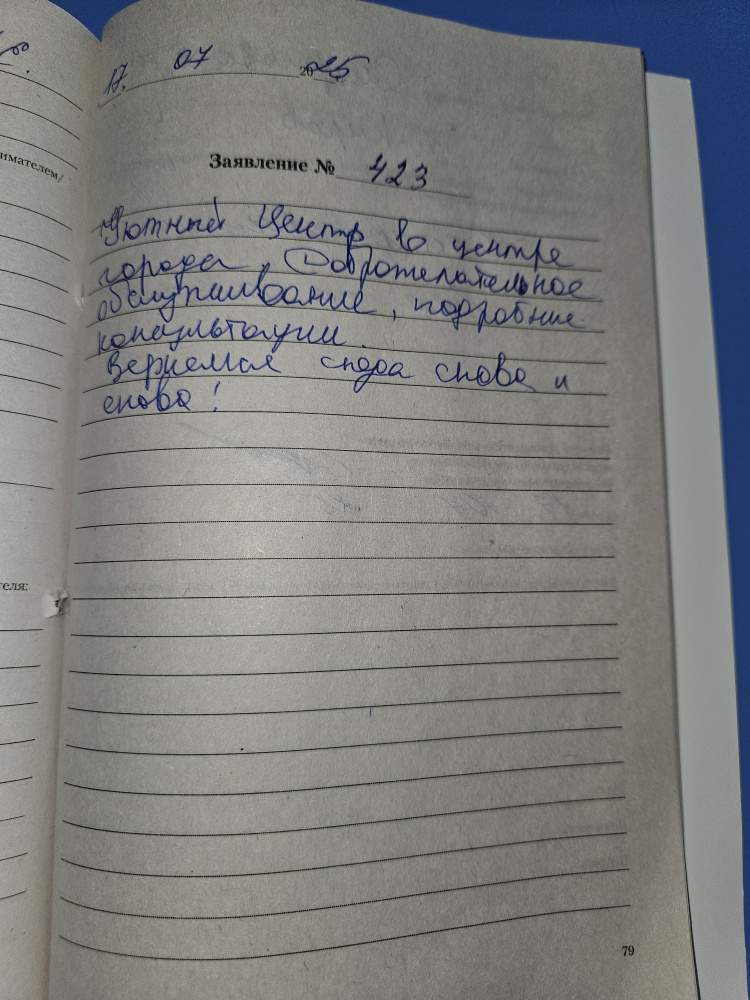 17. 07 2025
Заявление № 423
Уютный Центр в центре
города. Доброжелательное
обслуживание, подробные
консультации.
Вернемся сюда снова и
снова!
нимателем/
теля:
79